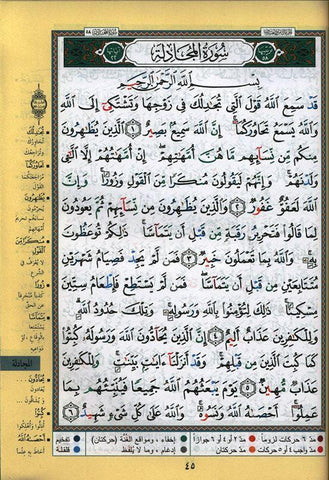 ٥٨
سُورَةُ المُجَادلة
بِسْمِ اللَّهِ الرَّحْمَٰنِ الرَّحِيمِ
قَدْ سَمِعَ اللَّهُ قَوْلَ الَّتِي تُجَٰدِلُكَ فِي زَوْجِهَا وَتَشْتَكِي إِلَى اللَّهِ
وَاللَّهُ يَسْمَعُ تَحَاوُرَكُمَا إِنَّ اللَّهَ سَمِيعٌ بَصِيرٌ ١ الَّذِينَ يُظَٰهِرُونَ
مِنكُم مِّن نِّسَائِهِم مَّا هُنَّ أُمَّهَٰتِهِمْ إِنْ أُمَّهَٰتُهُمْ إِلَّا الَّٰئِي
وَلَدْنَهُمْ وَإِنَّهُمْ لَيَقُولُونَ مُنكَرًا مِّنَ الْقَوْلِ وَزُورًا وَإِنَّ
اللَّهَ لَعَفُوٌّ غَفُورٌ ٢ وَالَّذِينَ يُظَٰهِرُونَ مِن نِّسَائِهِمْ ثُمَّ يَعُودُونَ
لِمَا قَالُوا فَتَحْرِيرُ رَقَبَةٍ مِّن قَبْلِ أَن يَتَمَاسَّا ذَٰلِكُمْ تُوعَظُونَ
بِهِ وَاللَّهُ بِمَا تَعْمَلُونَ خَبِيرٌ ٣ فَمَن لَّمْ يَجِدْ فَصِيَامُ شَهْرَيْنِ
مُتَتَابِعَيْنِ مِن قَبْلِ أَن يَتَمَاسَّا فَمَن لَّمْ يَسْتَطِعْ فَإِطْعَامُ سِتِّينَ
مِسْكِينًا ذَٰلِكَ لِتُؤْمِنُوا بِاللَّهِ وَرَسُولِهِ وَتِلْكَ حُدُودُ اللَّهِ
وَلِلْكَٰفِرِينَ عَذَابٌ أَلِيمٌ ٤ إِنَّ الَّذِينَ يُحَادُّونَ اللَّهَ وَرَسُولَهُ كُبِتُوا
كَمَا كُبِتَ الَّذِينَ مِن قَبْلِهِمْ وَقَدْ أَنزَلْنَا ءَايَٰتٍ بَيِّنَٰتٍ وَلِلْكَٰفِرِينَ
عَذَابٌ مُّهِينٌ ٥ يَوْمَ يَبْعَثُهُمُ اللَّهُ جَمِيعًا فَيُنَبِّئُهُم بِمَا
عَمِلُوا أَحْصَٰهُ اللَّهُ وَنَسُوهُ وَاللَّهُ عَلَىٰ كُلِّ شَيْءٍ شَهِيدٌ ٦
تُجادلك
تحاوركما
يُظاهرون
مُنكراً من
القول
زوراً
يتماسّا
المجادلة
يُحادّون
كُبتوا
أحصاه الله
مد ٦ حركات لزوماً
مد ٢ أو ٤ أو ٦ جوازاً
إخفاء، ومواقع الغُنَّة (حركتان)
تفخيم
مد واجب ٤ أو ٥ حركات
مد حركتان
إدغام، وما لا يُلفظ
قلقلة
٤٥